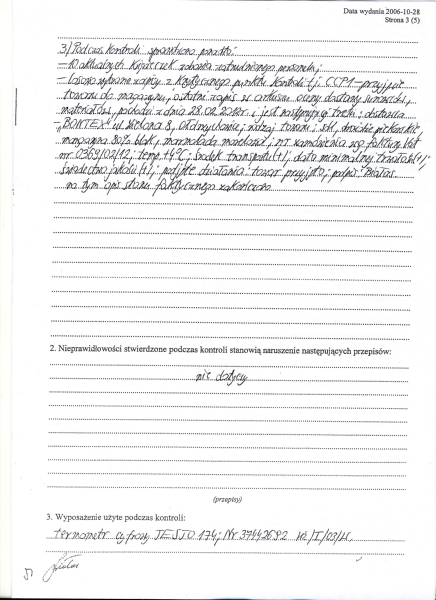 Data wydania 2006-10-28
Strona 3 (5)
3) Podczas kontroli sprawdzono ponadto:
- 10 aktualnych książeczek zdrowia zatrudnionego personelu;
- losowo wybrane zapisy z krytycznego punktu kontroli tj. CCP1 - przyjęcie
towaru do magazynu, ostatni zapis w arkuszu oceny dostawy surowców,
materiałów, pochodzi z dnia 28.02.2012r. i jest następującej treści: dostawca
"BONTEX" ul. 8, rodzaj towaru: ser, drożdże piekarskie,
margaryna 80% , marmolada , nr zamówienia wg faktury Vat
nr 0369/02/12, temp. +4°C; środek transportu (+), data minimalnej trwałości (+),
świadectwo jakości (+), podjęte działania: towar przyjęto; podpis:
na tym opis stanu faktycznego zakończono
2. Nieprawidłowości stwierdzone podczas kontroli stanowią naruszenie następujących przepisów:
nie dotyczy
(przepisy)
3. Wyposażenie użyte podczas kontroli:
termometr cyfrowy TESTO 174; Nr 37442692